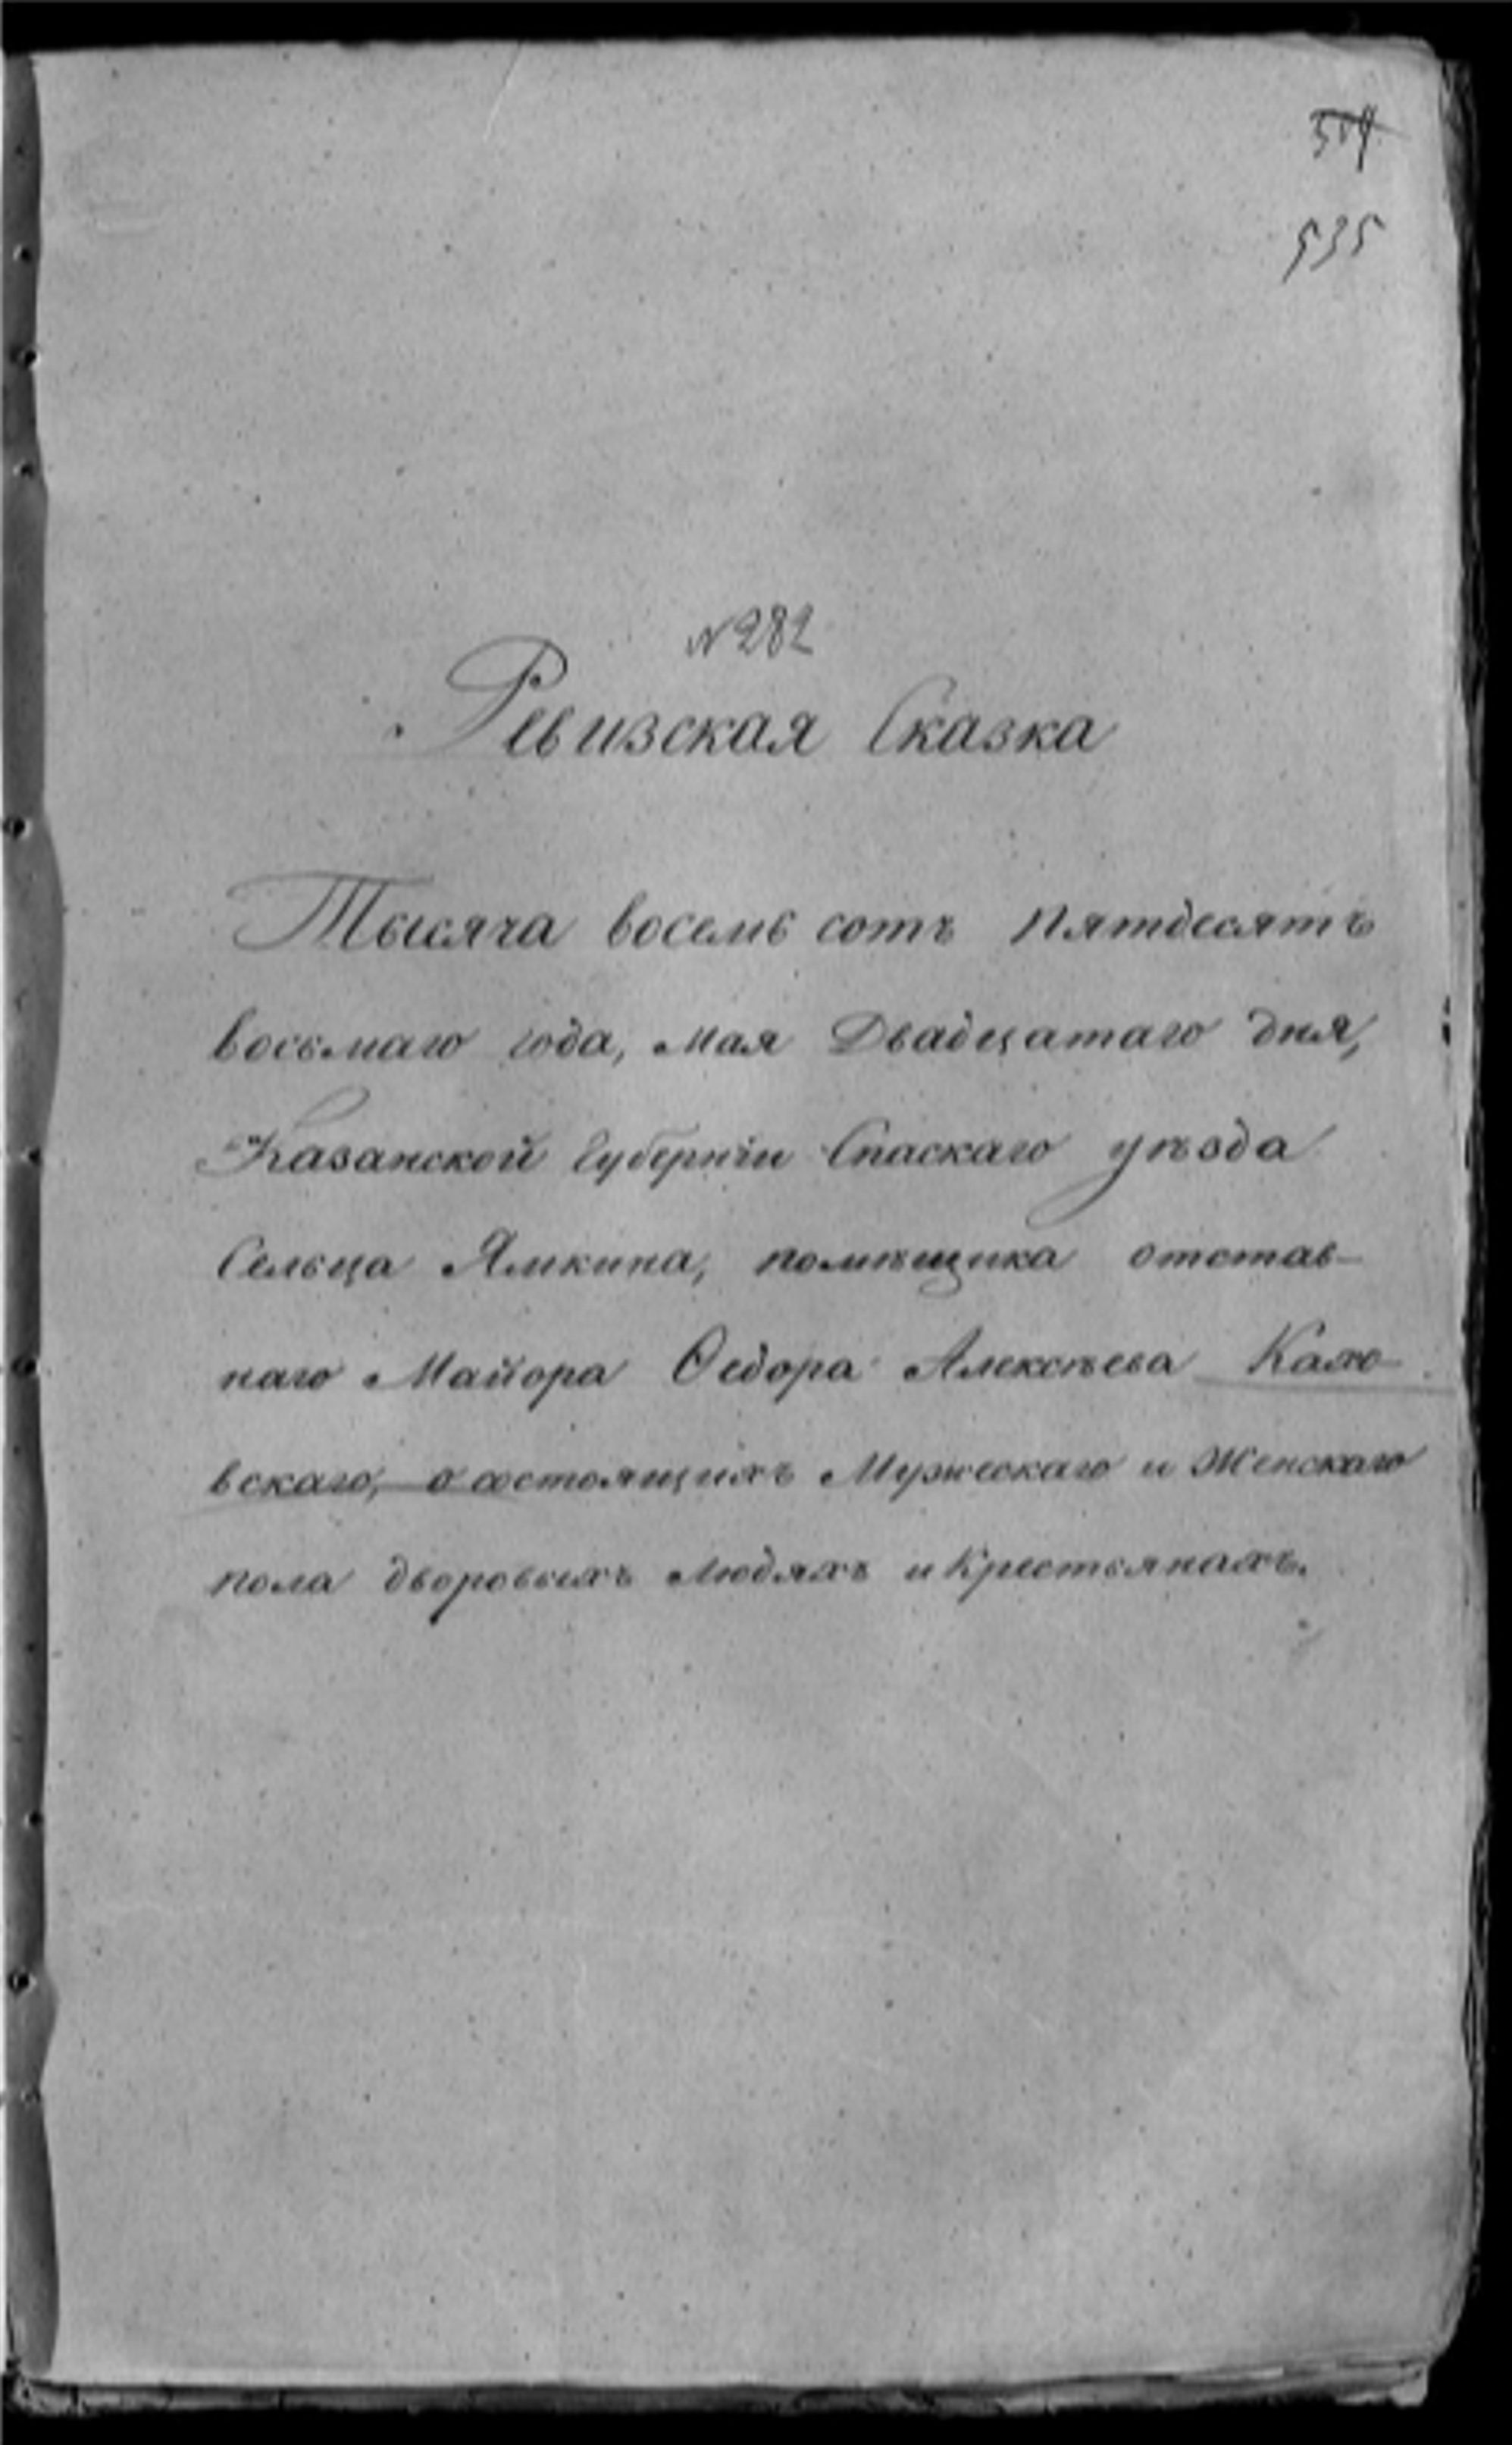 535
№ 282
Ревизская Сказка
Тысяча восемь сотъ пятдесятъ
восьмаго года, мая Двадцатаго дня,
Казанской Губерніи Спаскаго уѣзда
Сельца Ямкина, помѣщика отстав-
наго Маіора Ѳедора Алексѣева Кахо-
вскаго, о состоящихъ Мужескаго и Женскаго
пола дворовыхъ людяхъ и Крестьянахъ.